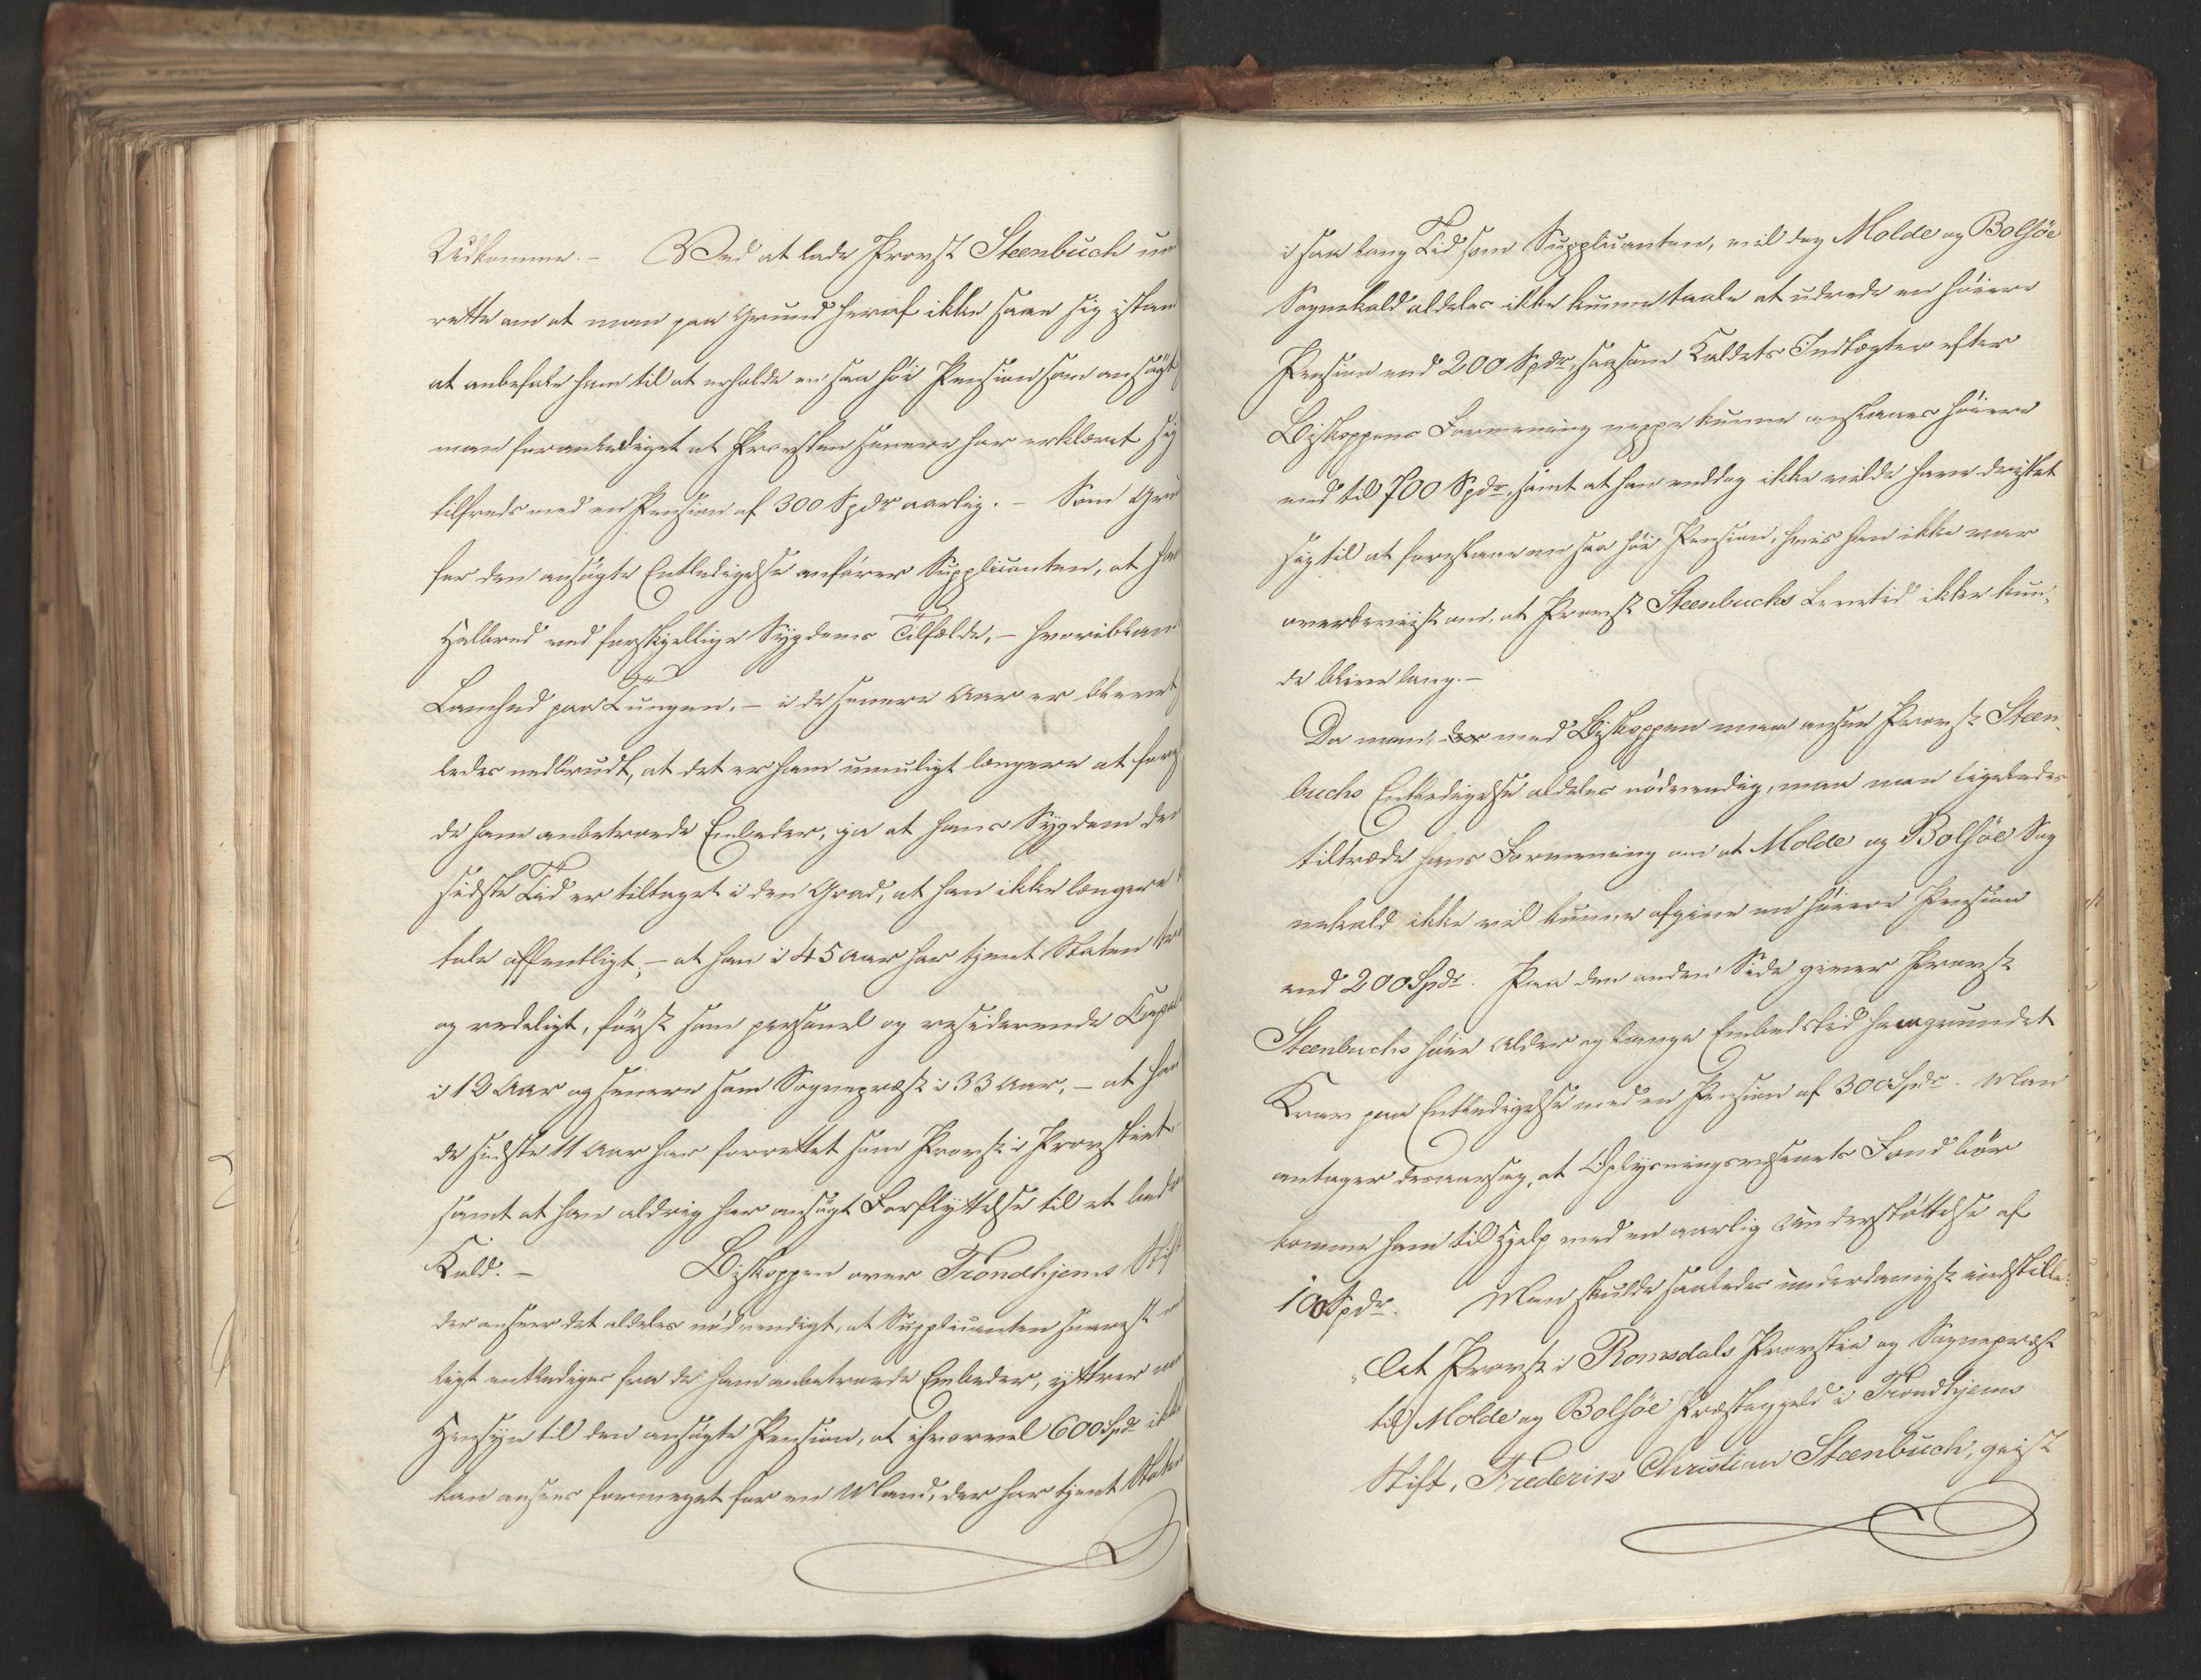 Udkomme. – Ved at lade Provst Steenbuch un
rette om at man paa Grund heraf ikke saae sig istan
at anbefale ham til at erholde en saa höi Pension som ansögt
man foranlediget at Provsten senere har erklæret sig
tilfreds med en Pension af 300 Spdr aarlig. – Som Gru
for den ansögte Entledigelse anförer Supplicanten, at han
Helbred ved forskjellige Sygdoms Tilfælde, – hvoriblan
Lamhed paa Tungen, – i de senere Aar er bleven
ledes nedbrudt, at det er ham umuligt længere at fore
de ham anbetroede Embeder, ja at hans Sygdom den
sidste Tid er tiltaget i den Grad, at han ikke længere
tale offentligt, – at han i 45 Aar har tjent Staten
og redeligt, först som personel og residerende Capel
i 12 Aar og senere som Sognepræst i 33 Aar, – at han
de sidste 11 Aar har forrettet som Provst i Provstiet,
samt at han aldrig har ansögt Forflyttelse til et bedr
Kald. – Biskoppen over Trondhjems Stift
der anseer det aldeles nödvendigt, at Supplicanten snarest
ligt entlediges fra de ham anbetroede Embeder, yttrer
Hensyn til den ansögte Pension, at ihvorvel 600 Spdr ikke
kan ansees formeget for en Mand, der har tjent Staten
i saa lang Tid som Supplicanten, vil dog Molde og Bolsöe
Sognekald aldeles ikke kunne taale at udrede en höiere
Pension end 200 Spdr, saasom Kaldets Indtægter efter
Biskoppens Formening neppe kunne anslaaes höiere
end til 700 Spdr, samt at han enddog ikke vilde have dristet
sig til at foreslaae en saa höi Pension, hvis han ikke var
overbeviist om, at Provst Steenbuchs Levetid ikke kun-
de blive lang. –
Da man med Biskoppen maa ansee Provst Steen-
buchs Entledigelse aldeles nödvendig, maa man ligeledes
tiltræde hans Formening om at Molde og Bolsöe Sog
nekald ikke vil kunne afgive en höiere Pension
end 200 Spdr. Paa den anden Side giver Provst
Steenbuchs höie Alder og lange Embedstid ham grundet
Krav paa Entledigelse med en Pension af 300 Spdr. Man
antager desaarsag, at Oplysningsvæsenets Fond bör
komme ham til Hjelp med en aarlig Understöttelse af
100 Spdr. Man skulde saaledes underdanigst indstille:
"At Provst i Romsdals Provstie og Sognepræst
til Molde og Bolsöe Præstegjeld i Trondhjems
Stift, Frederik Christian Steenbuch, gives